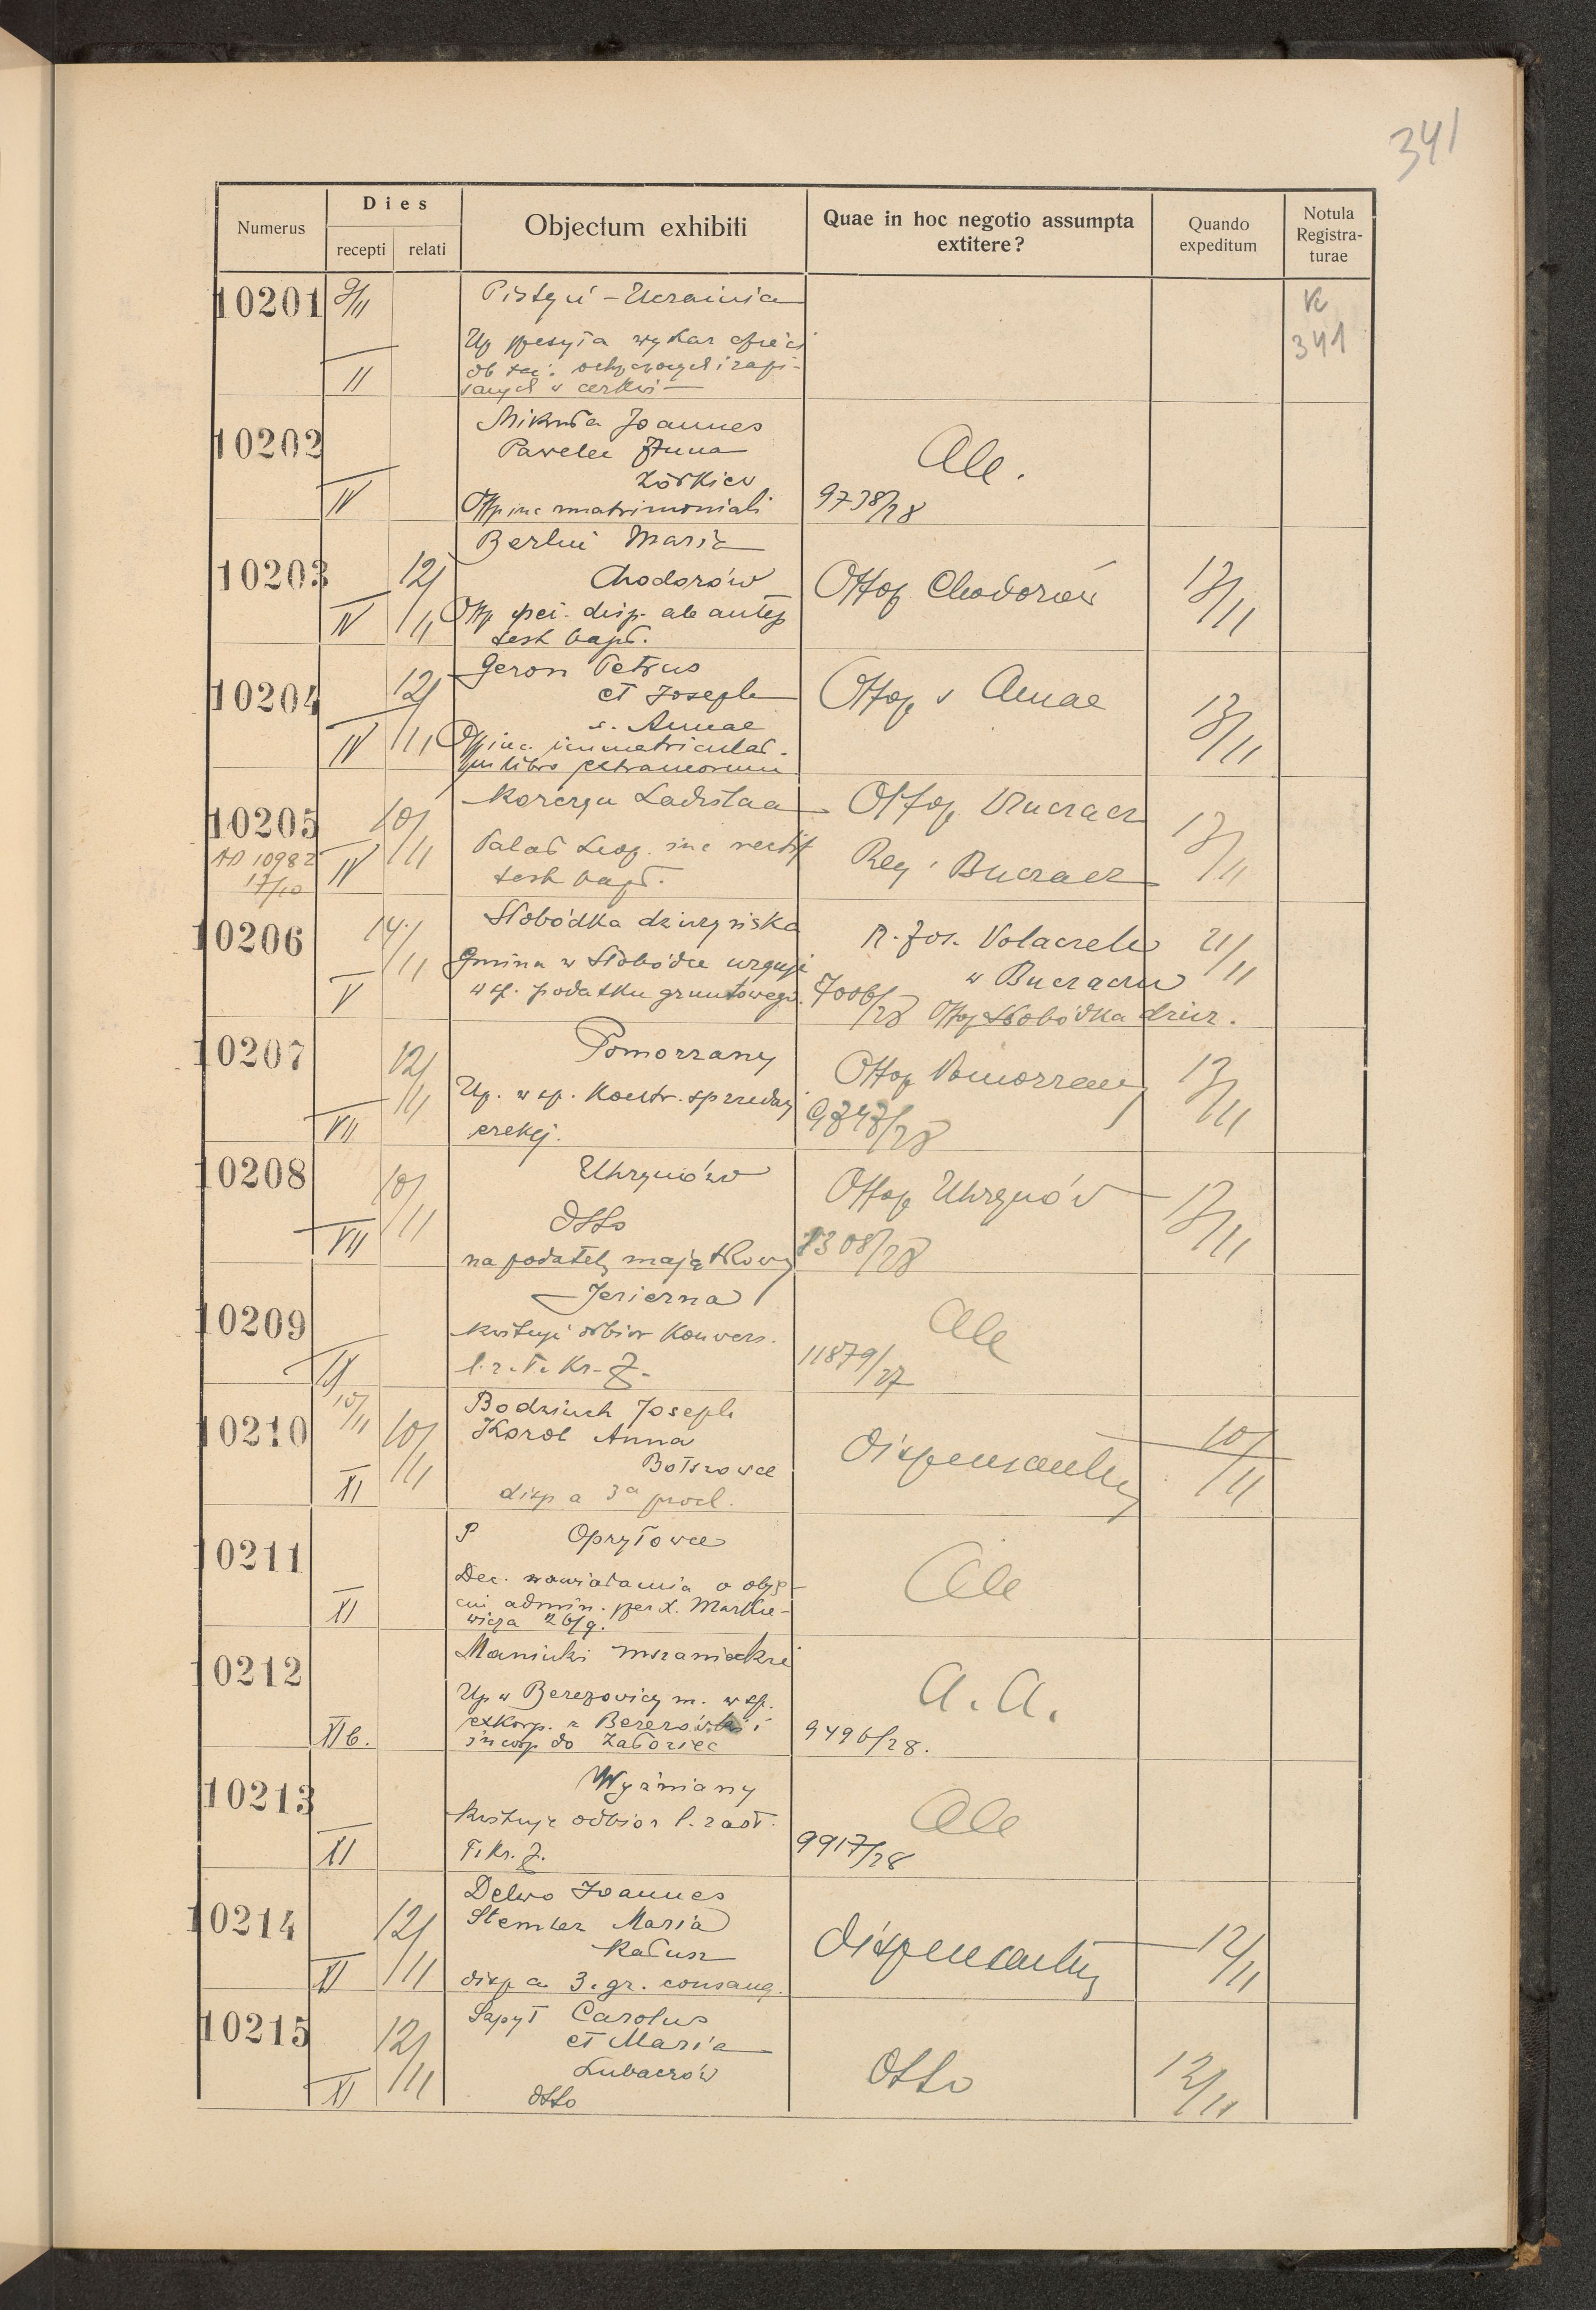 341
Numerus
Dies
recepti
relati
Objectum exhibiti
Quae in hoc negotio assumpta
extitere?
Quando
expeditum
Notula
Registra-
turae
10201
9/11
II
Pistyń - Ucrainia
wykar
w cerkwi
341
10202
IV
Mikuła Joannes
Pawelec Anna
Żółkiew
matrimoniali
Ale.
9738/28
10203
IV
12/11
Maria
Chodorów
disp. ab
test bapt.
Ottop Chodorów
13/11
10204
IV
12/11
Geron Petrus
et Joseph
s. Annae
immatriculat.
in libro extraneorum
Ottop s Annae
13/11
10205
AD 10982
17/10
IV
10/11
Ladislaa
Palat Leop. rectif
test bapt.
Ottop Buczacz
Reg. Buczacz
13/11
10206
V
14/11
Słobódka dżuryńska
Gmina w Słobódce urguje
w sp. podatku gruntowego.
w Buczaczu
7006/28 Ottop Słobódka dżur.
21/11
10207
VII
12/11
Pomorzany
Up. w sp. kontr. sprzedaży
erekcj.
Ottop Pomorzany
9343/28
13/11
10208
VII
10/11
Uhrynów
Otto
na podatek majątkowy
Ottop Uhrynów
7308/28
13/11
10209
IX
Jezierna
kwituje odbiór konwers.
l. z. T. Kr. Z.
Ale
11879/27
10210
10/11
XI
10/11
Bodziuch Joseph
Korol Anna
Bołszowce
disp a 3a procl.
Dispensantur
10/11
10211
XI
P Opryłowce
Dec. zawiadamia o obję-
ciu admin. per X. Markie-
wicza 26/9.
Ale
10212
XIb.
Up w Berezowicy m. w sp.
exkorp. z
inkorp do Załoziec
A. A.
9496/28.
10213
XI
Wyżniany
kwituje odbiór l. zast.
T. Kr. Z.
Ale
9917/28
10214
XI
12/11
Delwo Joannes
Maria
Kałusz
disp a 3. gr. consang.
Dispensantur
12/11
10215
XI
12/11
Sapyt Carolus
et Maria
Lubaczów
Otto
Otto
12/11